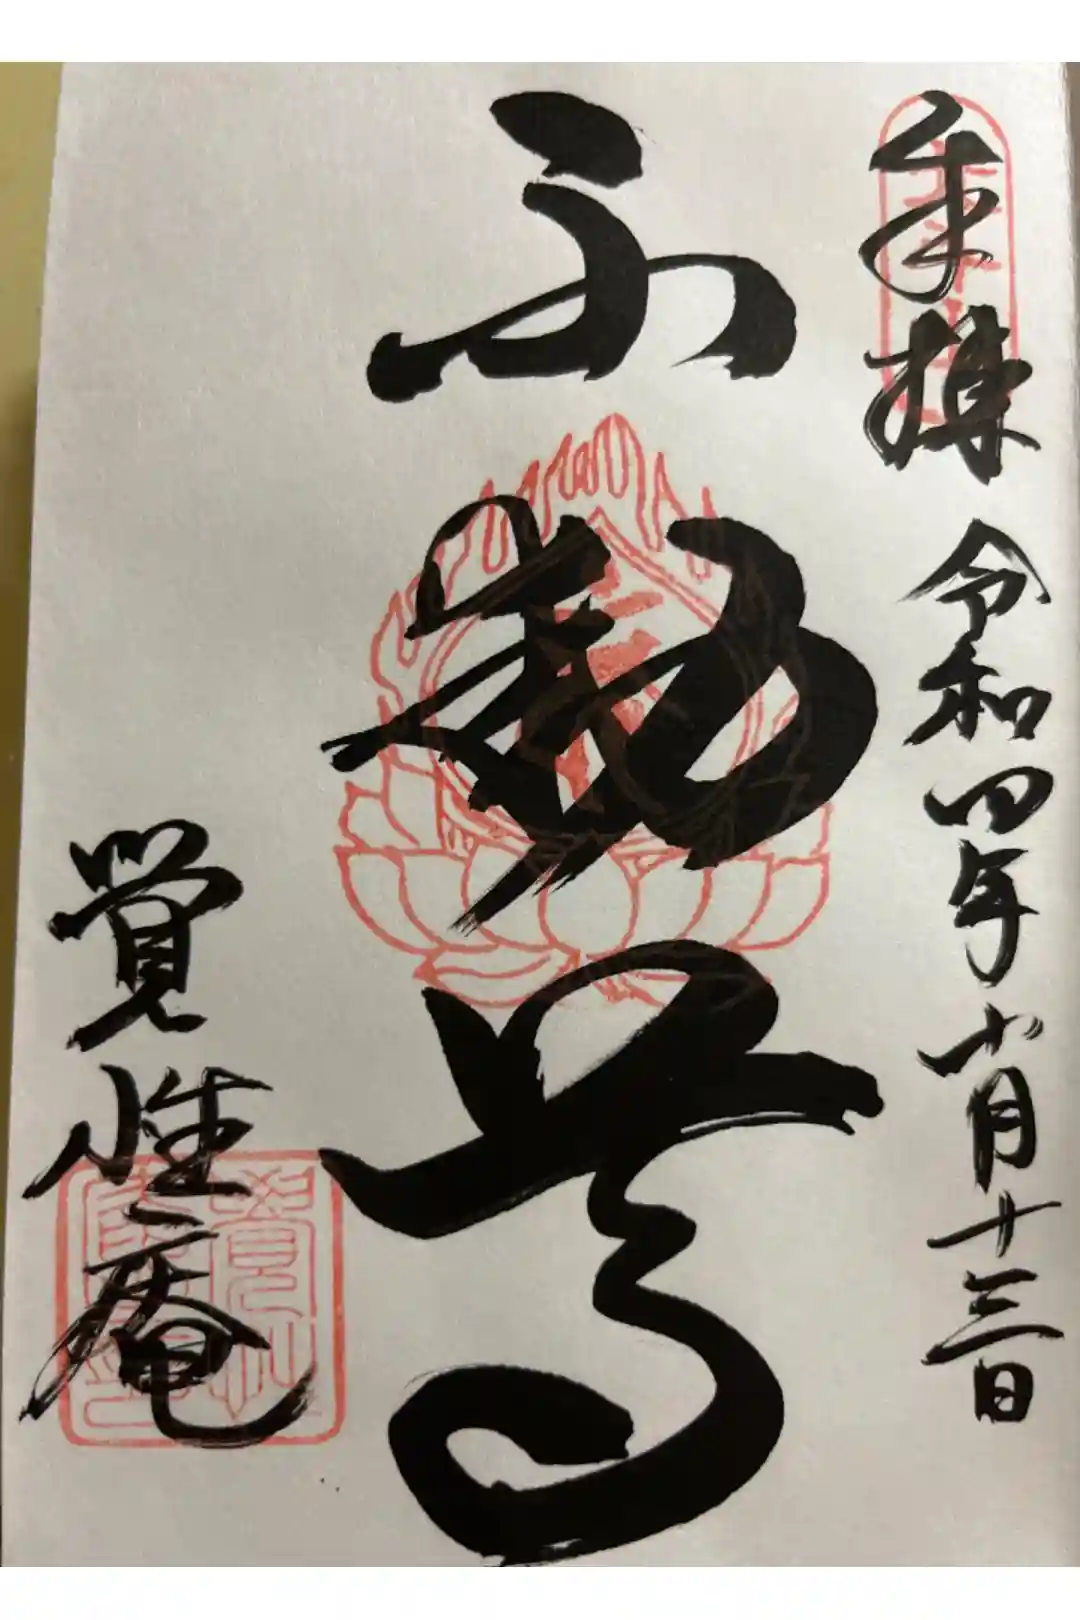 奉拝 令和四年小月十三日
不動尊
覚性庵